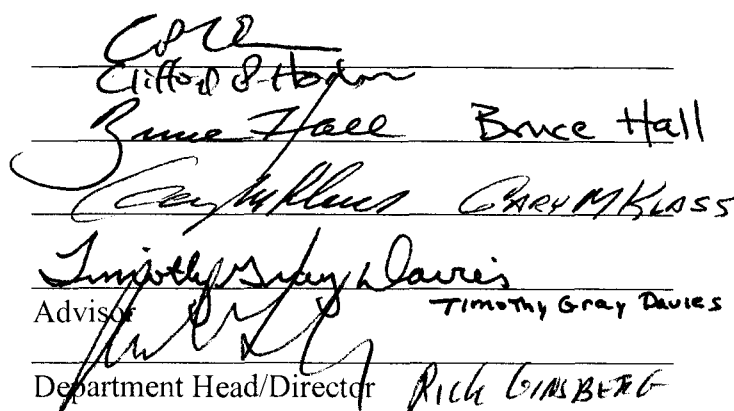 Clifford P Hodon
Bruce Hall Bruce Hall
Gary M Klass GARY M KLASS
Timothy Gray Davies
Advisor Timothy Gray Davies
Department Head/Director RICK GINSBERG